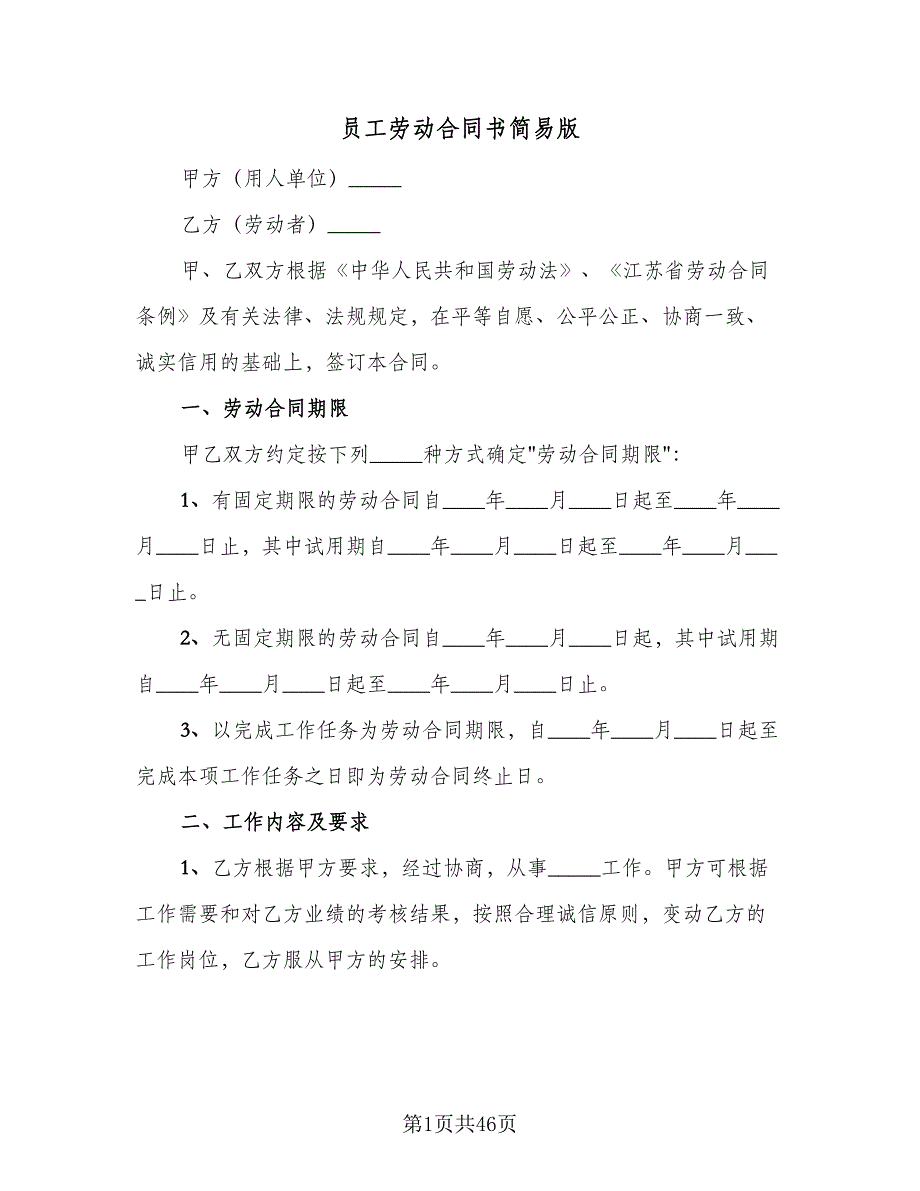 员工劳动合同书简易版
甲方（用人单位）_____
乙方（劳动者）_____
甲、乙双方根据《中华人民共和国劳动法》、《江苏省劳动合同
条例》及有关法律、法规规定，在平等自愿、公平公正、协商一致、
诚实信用的基础上，签订本合同。
一、劳动合同期限
甲乙双方约定按下列_____种方式确定"劳动合同期限"：
1、有固定期限的劳动合同自____年____月____日起至____年____
月____日止，其中试用期自____年____月____日起至____年____月___
_日止。
2、无固定期限的劳动合同自____年____月____日起，其中试用期
自____年____月____日起至____年____月____日止。
3、以完成工作任务为劳动合同期限，自____年____月____日起至
完成本项工作任务之日即为劳动合同终止日。
二、工作内容及要求
1、乙方根据甲方要求，经过协商，从事_____工作。甲方可根据
工作需要和对乙方业绩的考核结果，按照合理诚信原则，变动乙方的
工作岗位，乙方服从甲方的安排。
第1页共46页